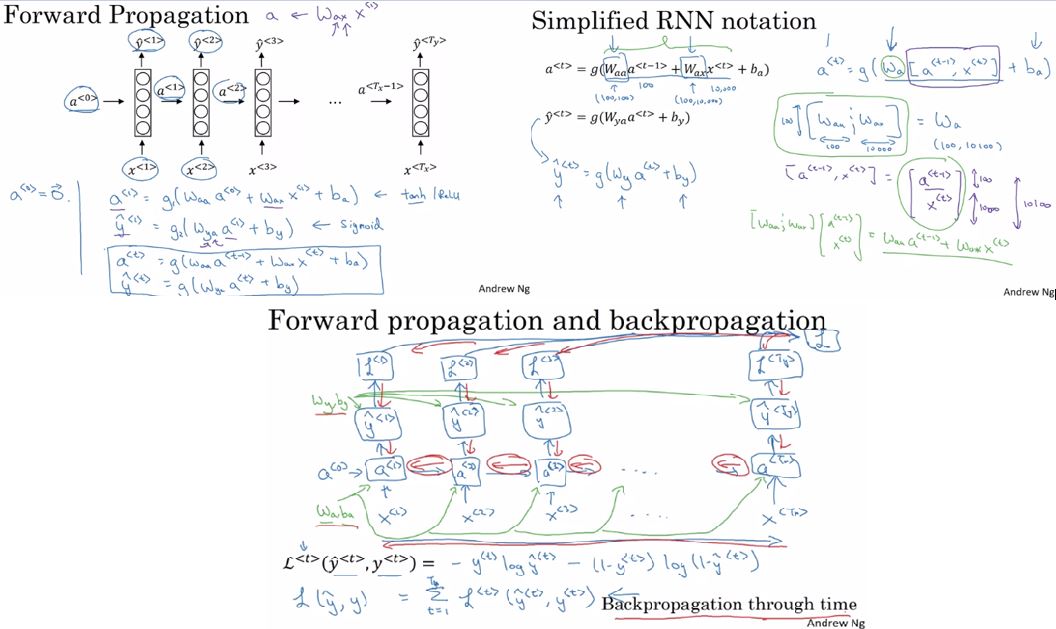 Forward Propagation
a ← Wax x<1>
ŷ<1> ŷ<2> ŷ<3> ŷ<Ty>
a<0> a<1> a<2> ... a<Tx−1>
x<1> x<2> x<3> x<Tx>
a<0> = 0⃗.
a<1> = g₁(Waa a<0> + Wax x<1> + ba) ← tanh | ReLU
ŷ<1> = g₂(Wya a<1> + by) ← sigmoid
a<t> = g(Waa a<t-1> + Wax x<t> + ba)
ŷ<t> = g(Wya a<t> + by)
Andrew Ng
Simplified RNN notation
a<t> = g(Waa a<t−1> + Wax x<t> + ba)
(100,100) 100 (100,10,000) 10,000
ŷ<t> = g(Wya a<t> + by)
ŷ<t> = g(Wy a<t> + by)
a<t> = g(Wa [a<t-1>, x<t>] + ba)
100 [Waa ; Wax] = Wa
100 10000 (100, 10100)
[a<t-1>, x<t>] = [a<t-1> x<t>] 100 1000 10100
[Waa ; Wax] [a<t-1> x<t>] = Waa a<t-1> + Wax x<t>
Andrew Ng
Forward propagation and backpropagation
ℒ
ℒ<1> ℒ<2> ℒ<3> ℒ<Ty>
Wy,by
ŷ<1> ŷ<2> ŷ<3> ŷ<Ty>
a<0> a<1> a<2> a<3> .... a<Tx>
Wa,ba
x<1> x<2> x<3> .... x<Tx>
ℒ<t>(ŷ<t>, y<t>) = − y<t> log ŷ<t> − (1−y<t>) log (1−ŷ<t>)
ℒ(ŷ, y) = Σ t=1 Ty ℒ<t>(ŷ<t>, y<t>) ←
Backpropagation through time
Andrew Ng